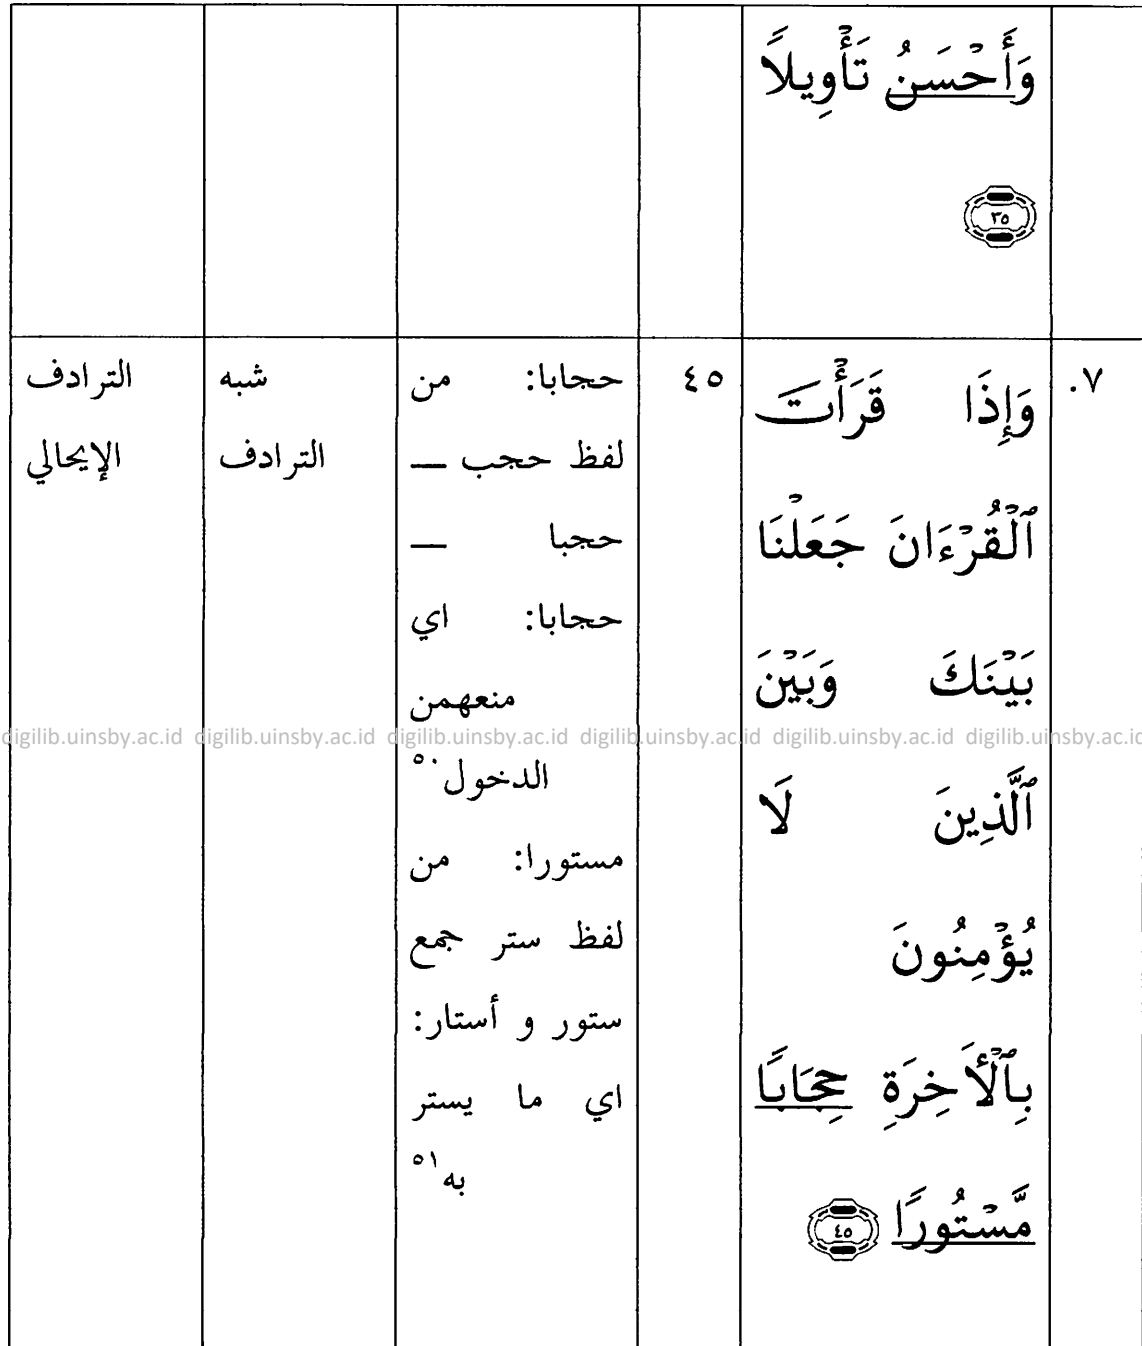 وَأَحْسَنُ تَأْوِيلاً
٣٥
٧.
وَإِذَا قَرَأْتَ
ٱلْقُرْءَانَ جَعَلْنَا
بَيْنَكَ وَبَيْنَ
ٱلَّذِينَ لَا
يُؤْمِنُونَ
بِٱلْأَخِرَةِ حِجَابًا
مَّسْتُورًا ٤٥
٤٥
حجابا: من
لفظ حجب —
حجبا —
حجابا: اي
منعهمن
الدخول٥٠
مستورا: من
لفظ ستر جمع
ستور و أستار:
اي ما يستر
به٥١
شبه
الترادف
الترادف
الإيحالي
digilib.uinsby.ac.id digilib.uinsby.ac.id digilib.uinsby.ac.id digilib.uinsby.ac.id digilib.uinsby.ac.id digilib.uinsby.ac.id